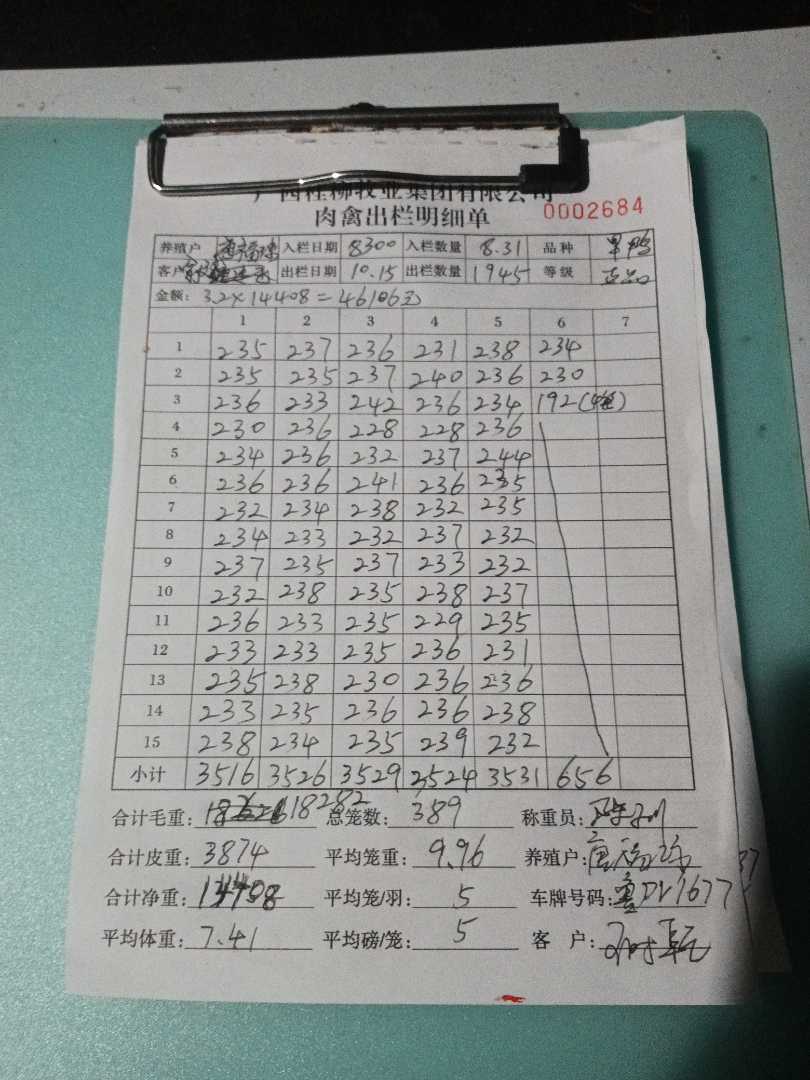 广西桂柳牧业集团有限公司
肉禽出栏明细单 0002684
养殖户 入栏日期 8300 入栏数量 8.31 品种
客户 出栏日期 10.15 出栏数量 1945 等级
金额: 3.2×14408=46106元
1 2 3 4 5 6 7
1 235 237 236 231 238 234
2 235 235 237 240 236 230
3 236 233 242 236 234 192(4笼)
4 230 236 228 228 236
5 234 236 232 237 244
6 236 236 241 236 235
7 232 234 238 232 235
8 234 233 232 237 232
9 237 235 237 233 232
10 232 238 235 238 237
11 236 233 235 229 235
12 233 233 235 236 231
13 235 238 230 236 236
14 233 235 236 236 238
15 238 234 235 239 232
小计 3516 3526 3529 3524 3531 656
合计毛重: 18282 总笼数: 389 称重员:
合计皮重: 3874 平均笼重: 9.96 养殖户:
合计净重: 14408 平均笼/羽: 5 车牌号码:
平均体重: 7.41 平均磅/笼: 5 客 户: